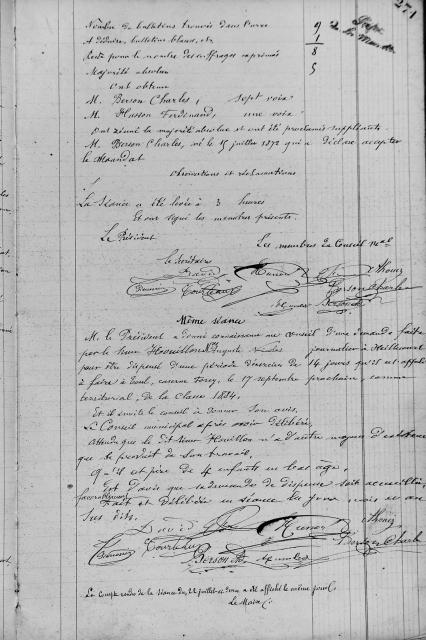 271
Nombre de bulletins trouvés dans l'urne 9
A déduire, bulletins blancs, etc 1
Reste pour le nombre des suffrages exprimés 8
Majorité absolue 5
Ont obtenu
M. Berson Charles, sept voix
M. Husson Ferdinand, une voix
Ont réuni la majorité absolue et ont été proclamés suppléants
M. Berson Charles, né le 15 juillet 1872 qui a déclaré accepter
le Mandat
Observations et réclamations
La Séance a été levée à 3 heures
Et ont signé les membres présents.
Le Président
Les membres du Conseil
Le Secrétaire
Thouez
Berson Charles
Même séance
M. le Président a donné connaissance au conseil d'une demande faite
par le sieur Houillon journalier à
pour être dispensé d'une période d'exercice de 14 jours qu'il est appelé
à faire à Toul, caserne le 17 septembre prochain, comme
territorial, de la classe 1884.
Et il invite le conseil à donner son avis.
Le Conseil municipal après avoir délibéré,
Attendu que le dit sieur Houillon n'a d'autre moyen d'existence
que le produit de son travail,
Qu'il est père de 4 enfants en bas âge,
Est d'avis que la demande de dispense soit accueillie
favorablement
Fait et Délibéré en séance les jour, mois et an
Sus dits.
David
Thouez
Berson
Berson Charles
Le Compte rendu de la séance du 22 juillet a été affiché le même jour
Le Maire